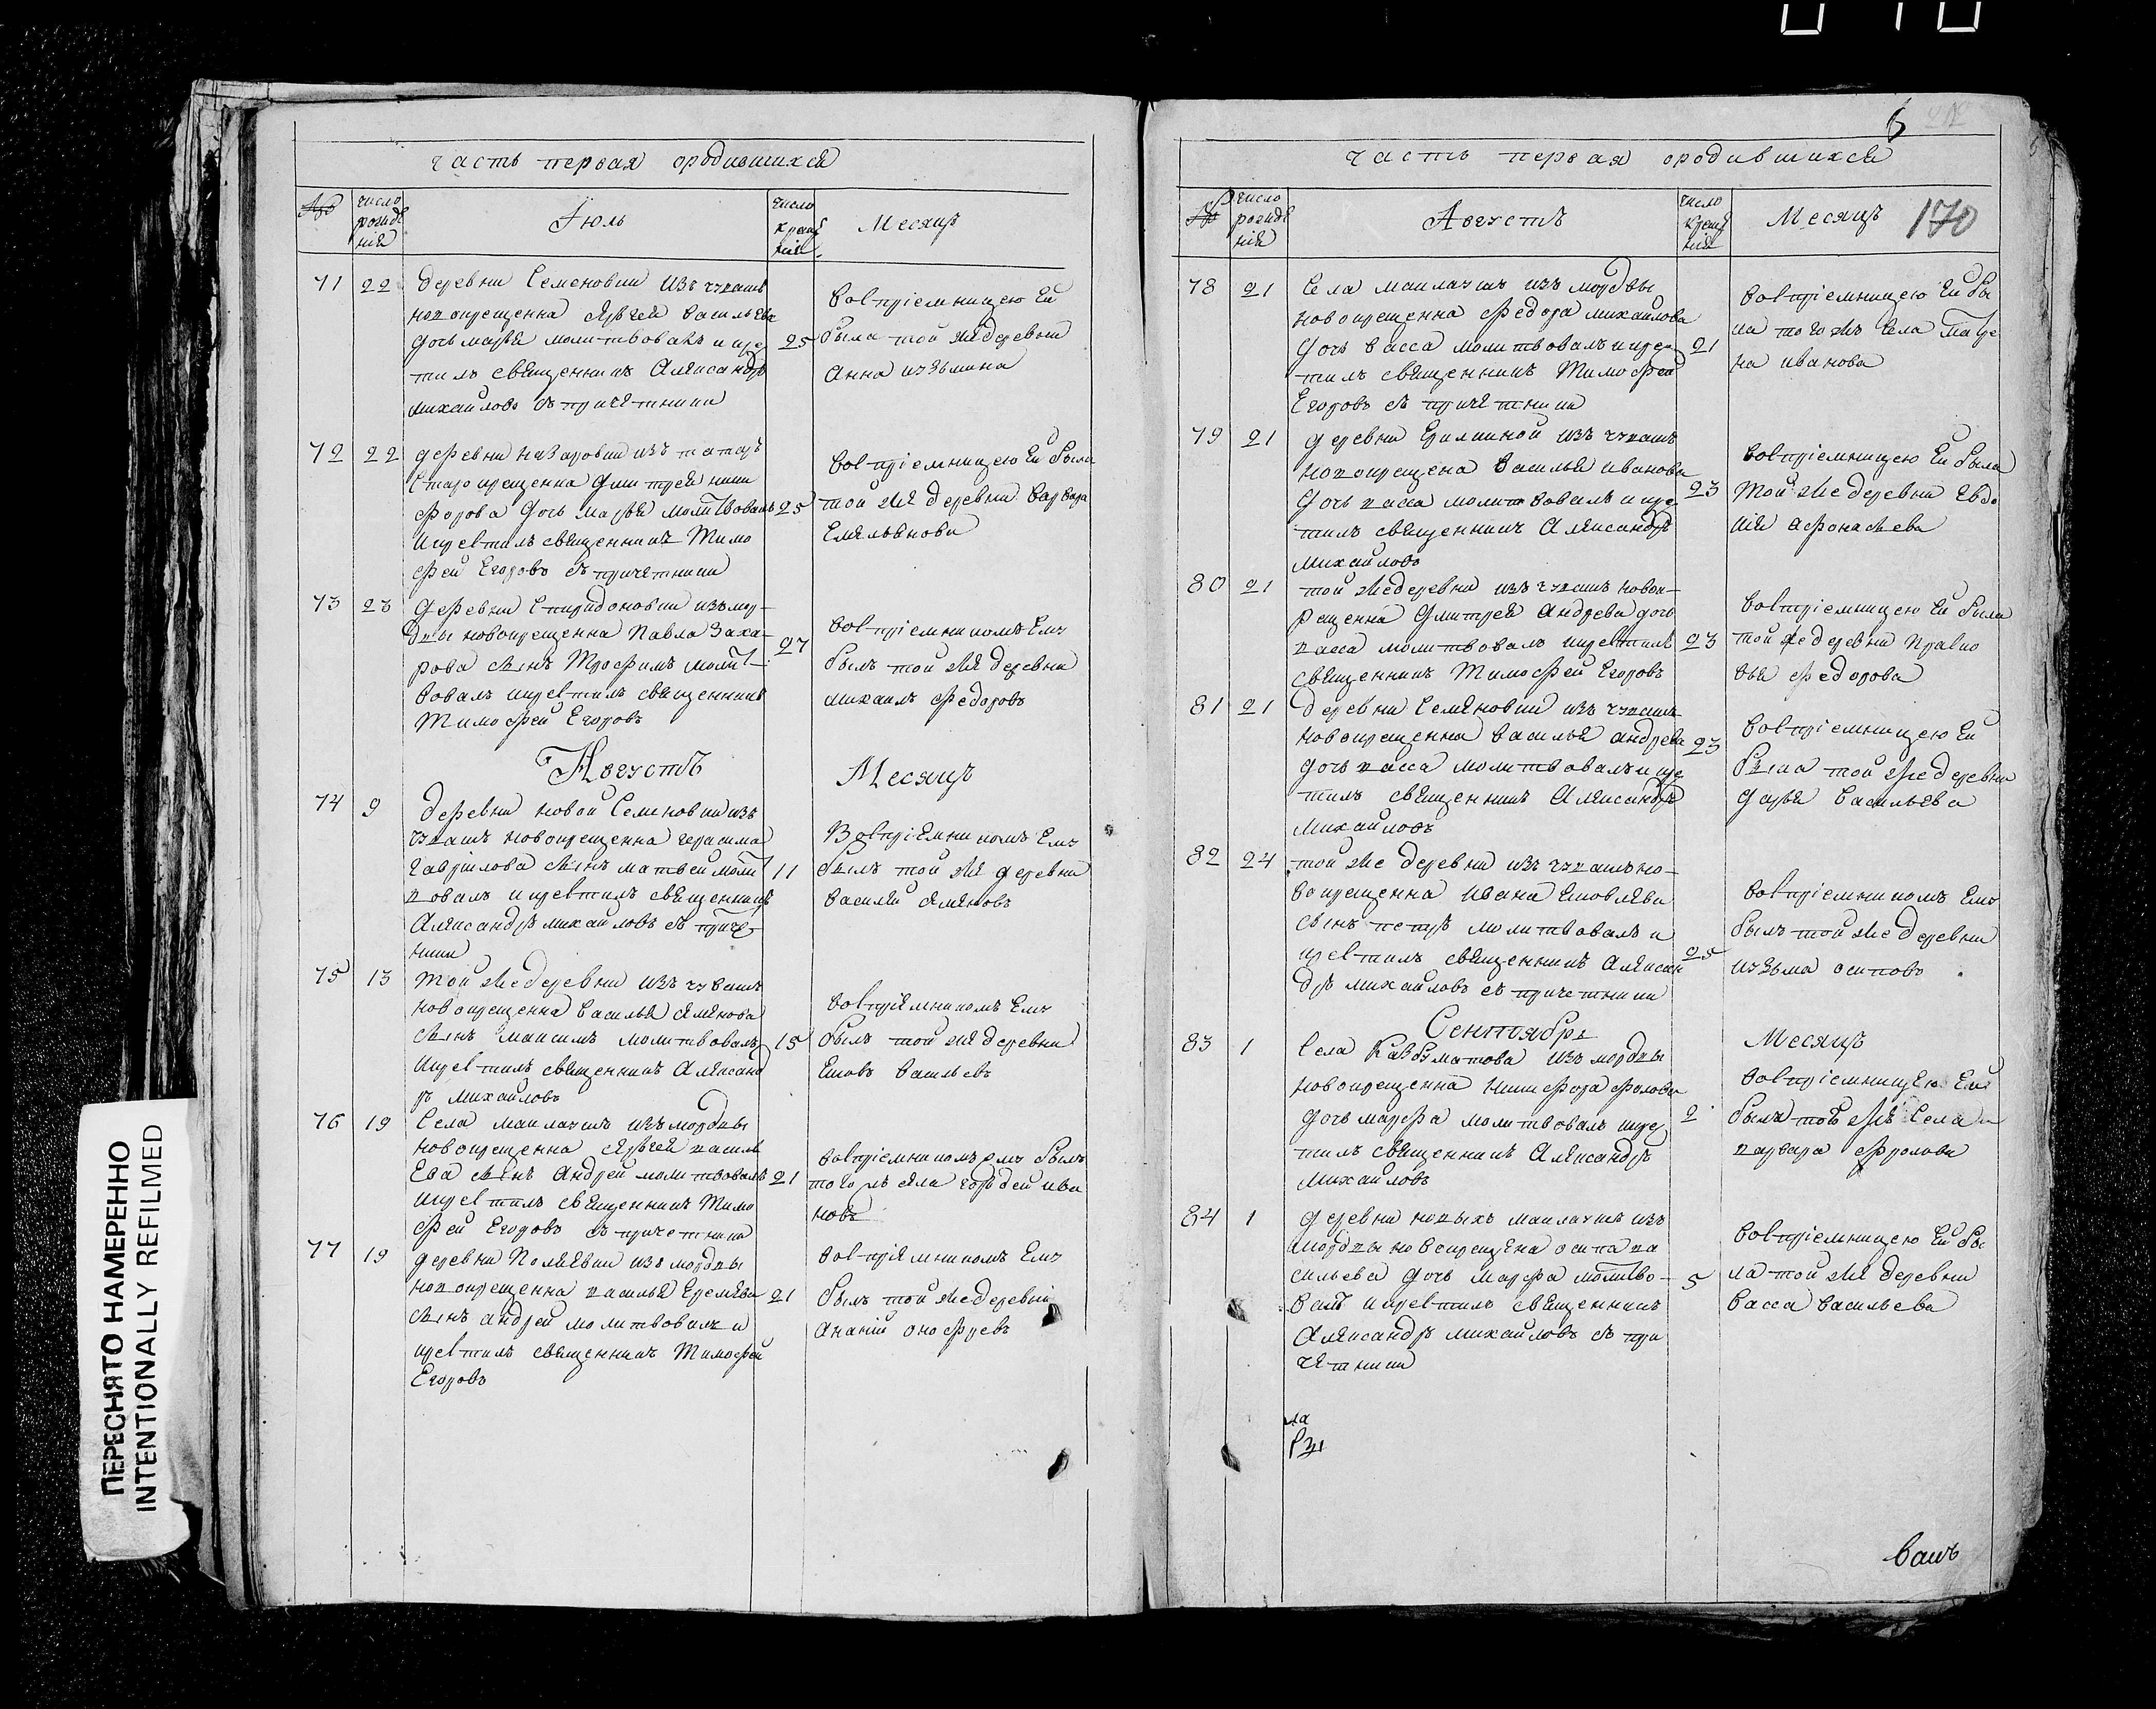 часть первая ородившихся
№ число рожде нія
Іюль
число креще нія
Месяцъ
71 22
деревни Семеновки изъ чувашъ
новокрещенна Сергея васильева
дочь марья молитвовалъ и кре
тилъ священникъ Александръ
михайловъ съ причетники
25
восприемницею Ей
была той же деревни
Анна кузьмина
72 22
деревни назаровки изъ татаръ
старокрещенна дмитрея ники
форова дочь марья молитвовалъ
и крестилъ священникъ Тимо
фей Егоровъ съ причетники
25
восприемницею Ей была
той же деревни варвара
Емельянова
73 23
деревни Спиридоновки изъ мор-
двы новокрещенна Павла Заха-
рова сынъ Трофимъ молит-
вовалъ и крестилъ священникъ
Тимофей Егоровъ
27
восприемникомъ Ему
былъ той же деревни
михаилъ федоровъ
Августъ
Месяцъ
74 9
деревни новой Семеновки изъ
чувашъ новокрещенна герасима
гаврилова сынъ матвей молит
вовалъ и крестилъ священникъ
Александръ михайловъ съ приче
ники
11
Восприемникомъ Ему
былъ той же деревни
василей семеновъ
75 13
той же деревни изъ чувашъ
новокрещенна василья семенова
сынъ максимъ молитвовалъ
и крестилъ священникъ Александ
ръ михайловъ
15
восприемникомъ Ему
былъ той же деревни
Яковъ васильевъ
76 19
Села маклаушъ изъ мордвы
новокрещенна Сергея василь
Ева сынъ Андрей молитвовалъ
и крестилъ священникъ Тимо
фей Егоровъ съ причетники
21
восприемникомъ ему былъ
того же села гордей ива
новъ
77 19
деревни Полевки изъ мордвы
новокрещенна василья Еремеева
сынъ андрей молитвовалъ и
крестилъ священникъ Тимофей
Егоровъ
21
восприемникомъ Ему
былъ той же деревни
Ананій онофреевъ
170
часть первая ородившихся
№ число рожде нія
Августъ
число креще нія
Месяцъ
78 21
Села маклаушъ изъ мордвы
новокрещенна федора михайлова
дочь васса молитвовалъ и кре
тилъ священникъ Тимофей
Егоровъ съ причетники
21
восприемницею Ей бы
ла того жъ села
на иванова
79 21
деревни изъ чувашъ
новокрещена василья иванова
дочь васса молитвовалъ и кре
тилъ священникъ Александръ
михайловъ
23
восприемницею Ей была
той же деревни Евдо
кия афонасьева
80 21
той же деревни изъ чувашъ новок-
рещенна дмитрея Андреева дочь
васса молитвовалъ и крестилъ
священникъ Тимофей Егоровъ
23
восприемницею Ей была
той же деревни праско
вья федорова
81 21
деревни Семеновки изъ чувашъ
новокрещенна василья андреева
дочь васса молитвовалъ и кре
тилъ священникъ Александръ
михайловъ
23
восприемницею Ей
была той же деревни
дарья васильева
82 24
той же деревни изъ чувашъ но-
вокрещенна ивана Яковлева
сынъ петръ молитвовалъ и
крестилъ священникъ Алексан
дръ михайловъ съ причетники
25
восприемникомъ Ему
былъ той же деревни
кузьма осиповъ
Сентябрь
Месяцъ
83 1
Села изъ мордвы
новокрещенна никифора фролова
дочь марфа молитвовалъ и кре
тилъ священникъ Александръ
михайловъ
2
восприемницею Ей
былъ того жъ Села
варвара фролова
84 1
деревни новыхъ маклаушъ изъ
мордвы новокрещена осипа ва
сильева дочь марфа молитво-
валъ и крестилъ священникъ
Александръ михайловъ съ при
четники
5
восприемницею Ей бы
ла той же деревни
васса васильева
ПЕРЕСНЯТО НАМЕРЕННО
INTENTIONALLY REFILMED